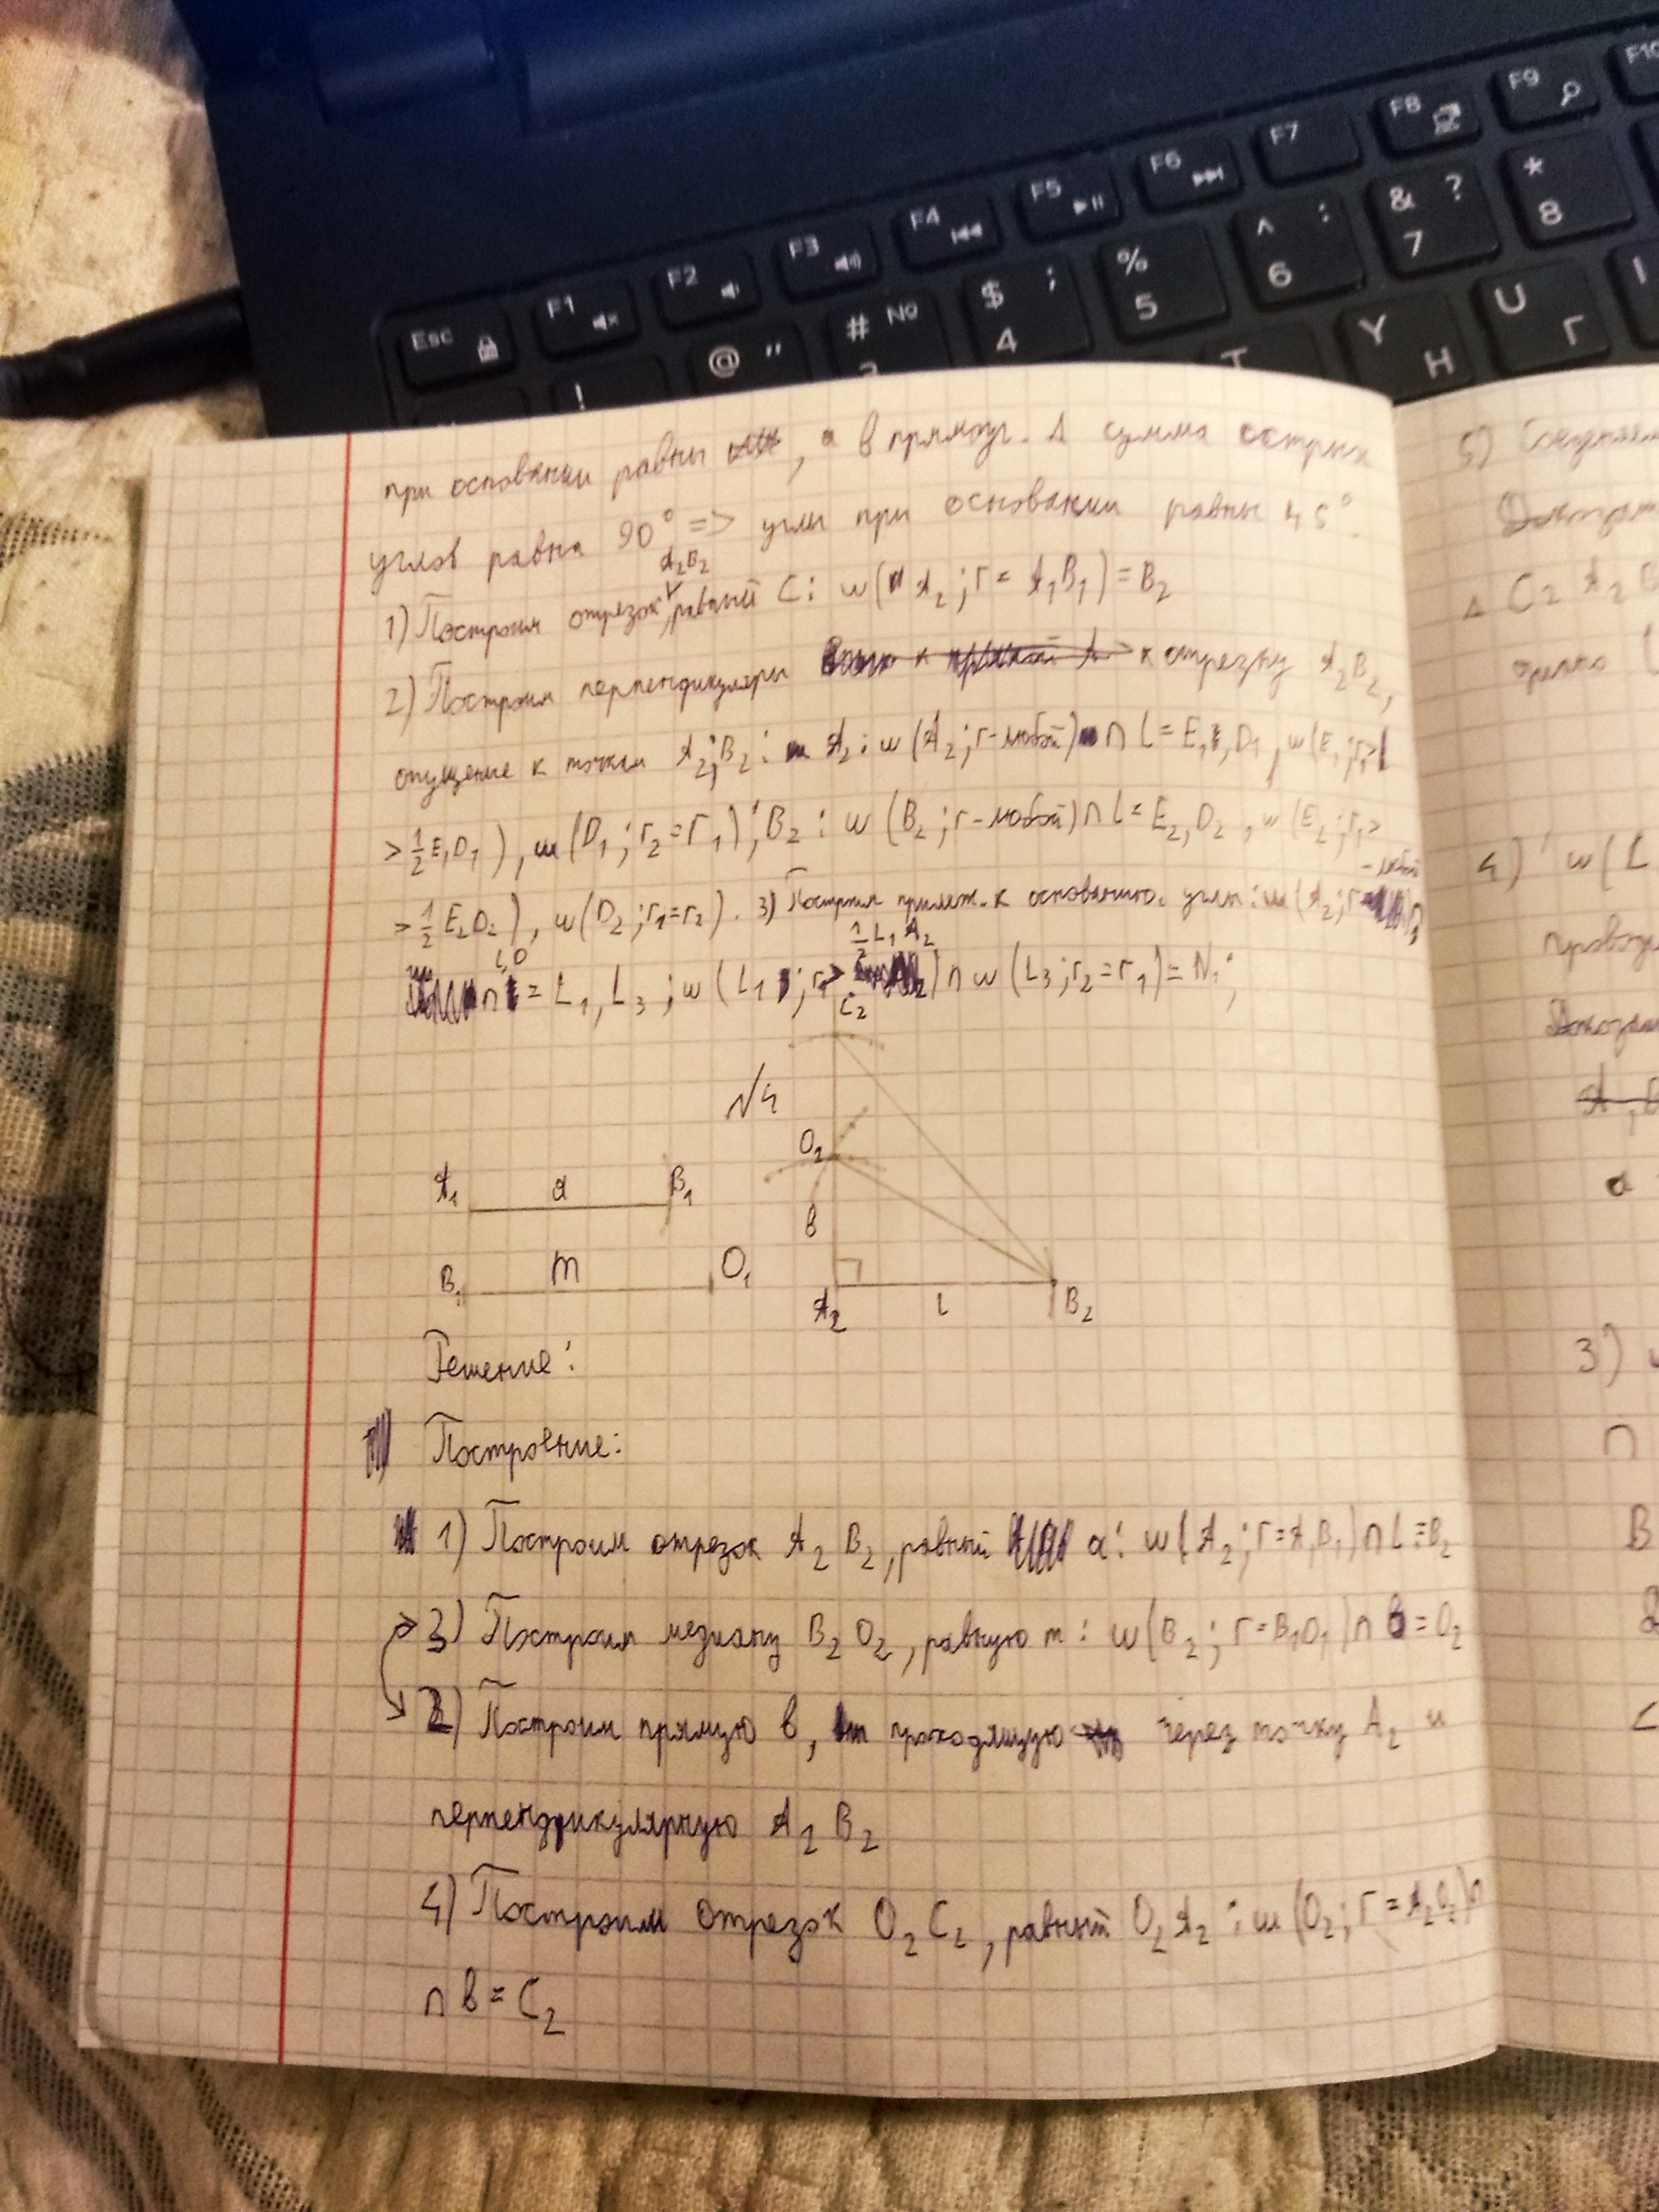 Esc F1 F2 F3 F4 F5 F6 F7 F8 F9 F10
! @ " # № $ ; 4 % 5 ^ : 6 & ? 7 * 8
Y Н U Г I
при основании равны , а в прямоуг. Δ сумма острых
углов равна 90° => углы при основании равны 45°.
A₂B₂
1) Построим отрезок, равный C: w(A₂; r = A₁B₁) = B₂
2) Построим перпендикуляры к отрезку A₂B₂,
опущение к точкам A₂; B₂: A₂: w(A₂; r-любой) ∩ L = E₁, D₁, w(E₁; r₁>
> ½ E₁D₁), w(D₁; r₂=r₁); B₂: w(B₂; r-любой) ∩ L = E₂, D₂, w(E₂; r₁>
-любой
> ½ E₂D₂), w(D₂; r₁=r₂). 3) Построим прилеж. к основанию углы: w(A₂; r
½ L₁ A₂
= L₁, L₃; w(L₁; r₁> ) ∩ w(L₃; r₂=r₁) = N₁;
C₂
√4
O₂
A₁ a B₁
в
B₁ m O₁
A₂ l B₂
Решение:
Построение:
1) Построим отрезок A₂ B₂, равный a: w(A₂; r=A₁B₁) ∩ L = B₂
3) Построим медиану B₂ O₂, равную m: w(B₂; r=B₁O₁) ∩ в = O₂
2) Построим прямую в, проходящую через точку A₂ и
перпендикулярную A₂ B₂
4) Построим отрезок O₂ C₂, равный O₂ A₂: w(O₂; r=A₂O₂) ∩
∩ в = C₂
5)
Δ C₂ A₂ B
4) w(L
3)
∩
B